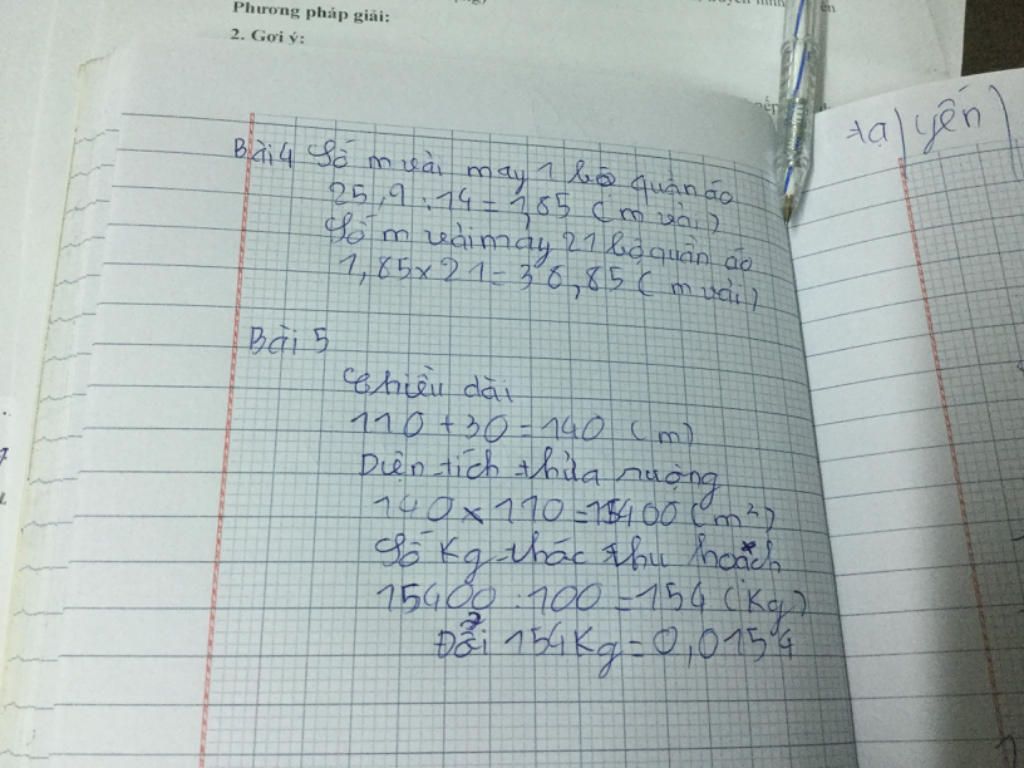 Phương pháp giải:
2. Gợi ý:
tạ/yến/
Bài 4 Số m vải may 1 bộ quần áo
25,9 : 14 = 1,85 (m vải)
Số m vải may 21 bộ quần áo
1,85 x 21 = 38,85 (m vải)
Bài 5
Chiều dài
110 + 30 = 140 (m)
Diện tích thửa ruộng
140 x 110 = 15400 (m²)
Số Kg thóc thu hoạch
15400 : 100 = 154 (Kg)
Đổi 154Kg = 0,0154